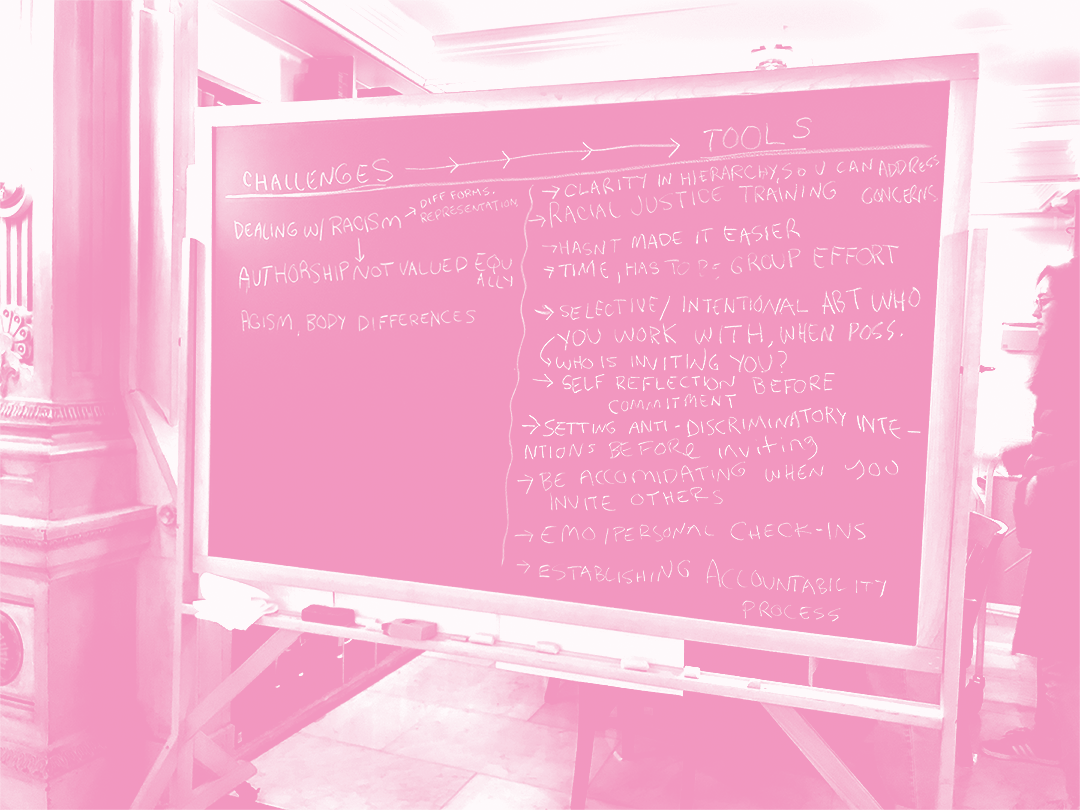 CHALLENGES → TOOLS
DEALING W/ RACISM → DIFF FORMS.
REPRESENTATION
↓
AUTHORSHIP NOT VALUED EQU
ALLY
AGISM, BODY DIFFERENCES
→ CLARITY IN HIERARCHY, SO U CAN ADDRESS
CONCERNS
→ RACIAL JUSTICE TRAINING
→ HASNT MADE IT EASIER
→ TIME, HAS TO BE GROUP EFFORT
→ SELECTIVE/ INTENTIONAL ABT WHO
YOU WORK WITH, WHEN POSS.
WHO IS INVITING YOU?
→ SELF REFLECTION BEFORE
COMMITMENT
→ SETTING ANTI-DISCRIMINATORY INTE-
NTIONS BEFORE inviting
→ BE ACCOMIDATING WHEN YOU
INVITE OTHERS
→ EMO/PERSONAL CHECK-INS
→ ESTABLISHING ACCOUNTABILITY
PROCESS